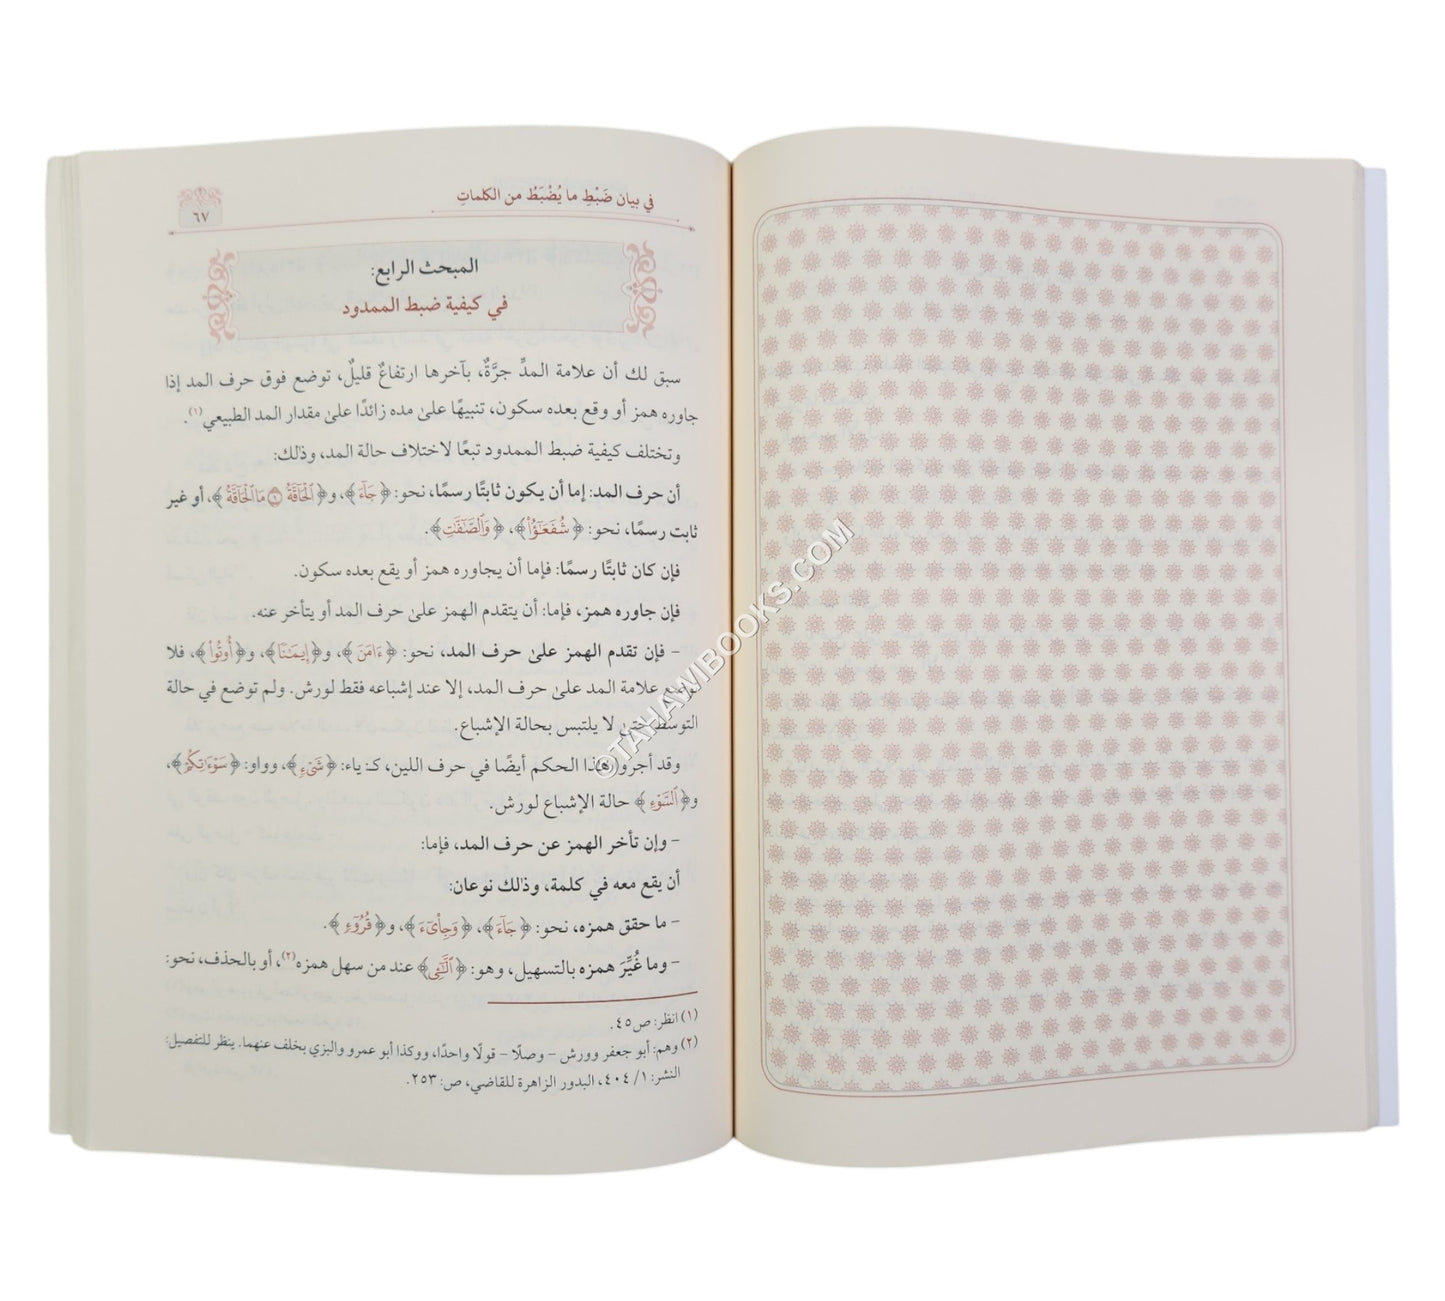 في بيان ضَبْطِ ما يُضْبَطُ من الكلماتِ
٦٧
المبحث الرابع:
في كيفية ضبط الممدود
سبق لك أن علامة المدِّ جرَّةٌ، بآخرها ارتفاعٌ قليلٌ، توضع فوق حرف المد إذا
جاوره همز أو وقع بعده سكون، تنبيهًا علىٰ مده زائدًا علىٰ مقدار المد الطبيعي(١).
وتختلف كيفية ضبط الممدود تبعًا لاختلاف حالة المد، وذالك:
أن حرف المد: إما أن يكون ثابتًا رسمًا، نحو: ﴿جَآءَ﴾، و﴿ٱلْحَآقَّةُ ١ مَا ٱلْحَآقَّةُ﴾، أو غير
ثابت رسمًا، نحو: ﴿شُفَعَـٰٓؤُا۟﴾، ﴿وَٱلصَّـٰٓفَّـٰتِ﴾.
فإن كان ثابتًا رسمًا: فإما أن يجاوره همز أو يقع بعده سكون.
فإن جاوره همز، فإما: أن يتقدم الهمز علىٰ حرف المد أو يتأخر عنه.
– فإن تقدم الهمز علىٰ حرف المد، نحو: ﴿ءَامَنَ﴾، و﴿إِيمَـٰنًا﴾، و﴿أُوتُوا۟﴾، فلا
توضع علامة المد علىٰ حرف المد، إلا عند إشباعه فقط لورش. ولم توضع في حالة
التوسط حتىٰ لا يلتبس بحالة الإشباع.
وقد أجروا هٰذا الحكم أيضًا في حرف اللين، كـ: ياء: ﴿شَىْءٍ﴾، وواو: ﴿سَوْءَٰتِكُمْ﴾،
و﴿ٱلسَّوْءِ﴾ حالة الإشباع لورش.
– وإن تأخر الهمز عن حرف المد، فإما:
أن يقع معه في كلمة، وذالك نوعان:
– ما حقق همزه، نحو: ﴿جَآءَ﴾، ﴿وَجِا۟ىٓءَ﴾، و﴿قُرُوٓءٍ﴾.
– وما غُيِّرَ همزه بالتسهيل، وهو: ﴿ٱلَّـٰٓـِٔى﴾ عند من سهل همزه(٢)، أو بالحذف، نحو:
(١) انظر: ص٤٥.
(٢) وهم: أبو جعفر وورش – وصلًا – قولًا واحدًا، ووكذا أبو عمرو والبزي بخلف عنهما. ينظر للتفصيل:
النشر: ١/ ٤٠٤، البدور الزاهرة للقاضي، ص: ٢٥٣.
©TAHAWIBOOKS.COM